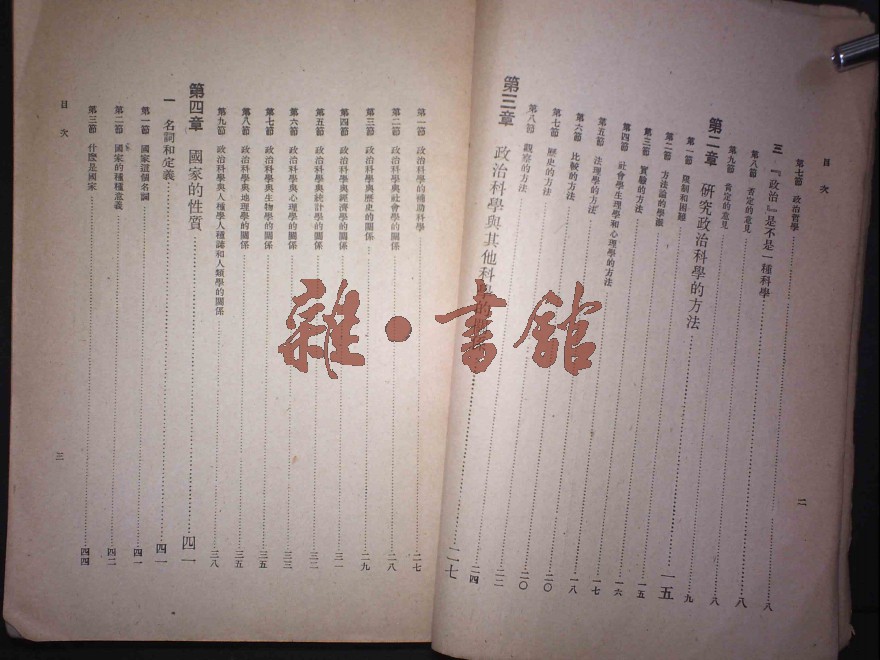 目次
第七節 政治哲學……八
三 『政治』是不是一種科學……八
第八節 否定的意見……八
第九節 肯定的意見……九
第二章 研究政治科學的方法……一五
第一節 限制和困難……一五
第二節 方法論的學派……一六
第三節 實驗的方法……一七
第四節 社會學生理學和心理學的方法……一八
第五節 法理學的方法……二〇
第六節 比較的方法……二〇
第七節 歷史的方法……二二
第八節 觀察的方法……二四
第三章 政治科學與其他科學的……二七
二
第一節 政治科學的補助科學……二七
第二節 政治科學與社會學的關係……二八
第三節 政治科學與歷史的關係……二九
第四節 政治科學與經濟學的關係……三一
第五節 政治科學與統計學的關係……三二
第六節 政治科學與心理學的關係……三三
第七節 政治科學與生物學的關係……三五
第八節 政治科學與地理學的關係……三五
第九節 政治科學與人種學人種誌和人類學的關係……三八
第四章 國家的性質……四一
一 名詞和定義……四一
第一節 國家這個名詞……四一
第二節 國家的種種意義……四二
第三節 什麼是國家……四四
目次
三
雜·書館